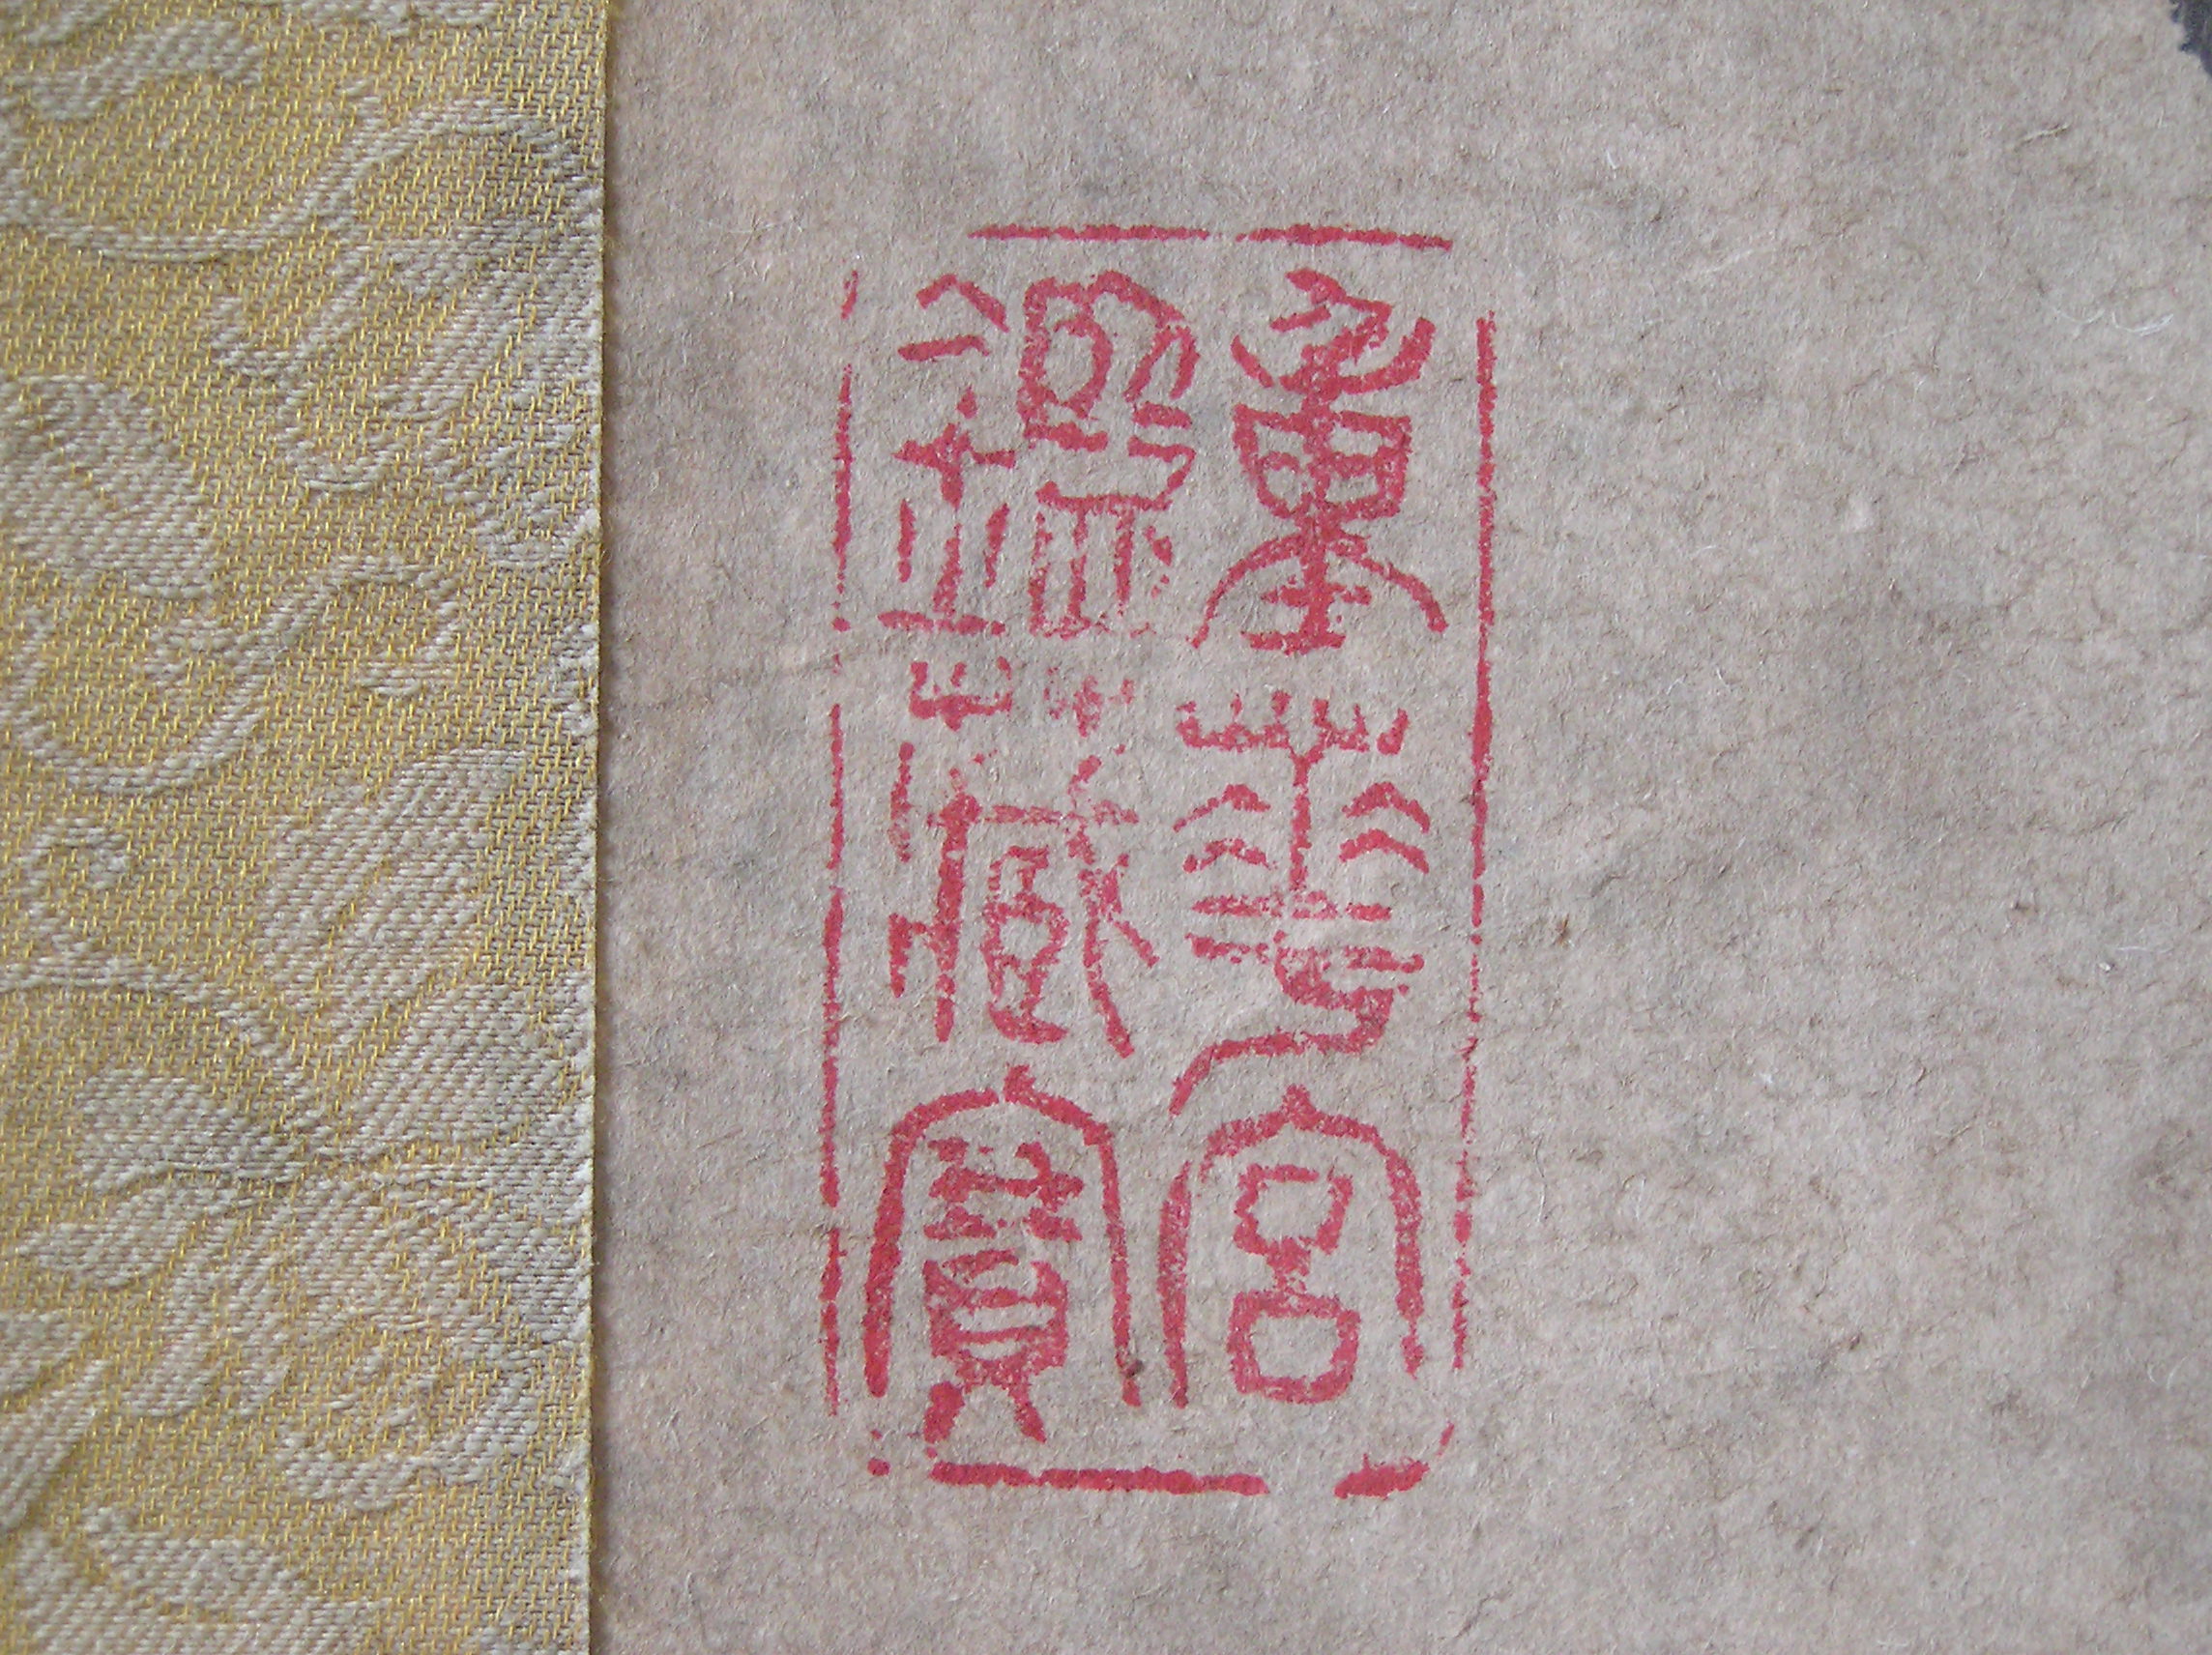 重華宮
鑑藏寶